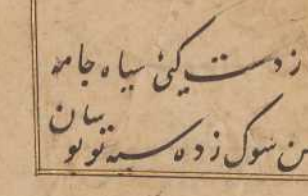 زدست کئ سیاه جامه
ن سوک زده سیه تو تو
سان